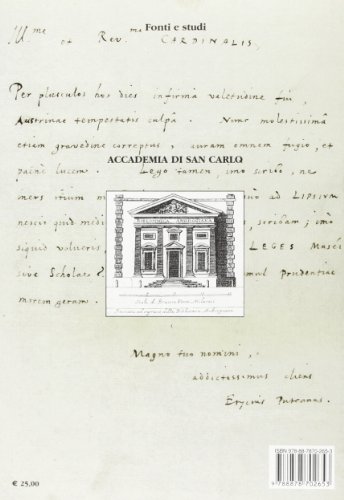 Fonti e studi
Ill.me et Rev.me CARDINALIS,
Per plusculos hos dies infirmâ valetudine fui,
Austrinae tempestatis culpâ. Nunc molestissimâ
etiam gravedine correptus, auram enim fugio, et
paene lucem. Lego tamen, imo scribo, ne
ACCADEMIA DI SAN CARLO
mers otium ad LIPSIUM
nescio quid scribam; imo
siquid volueris LEGES Musei
sive Scholae Prudentiae
morem geram.
Magno tuo nomini,
addictissimus cliens
Erycius Puteanus.
€ 25,00
ISBN 978-88-7870-265-3
9788878702653